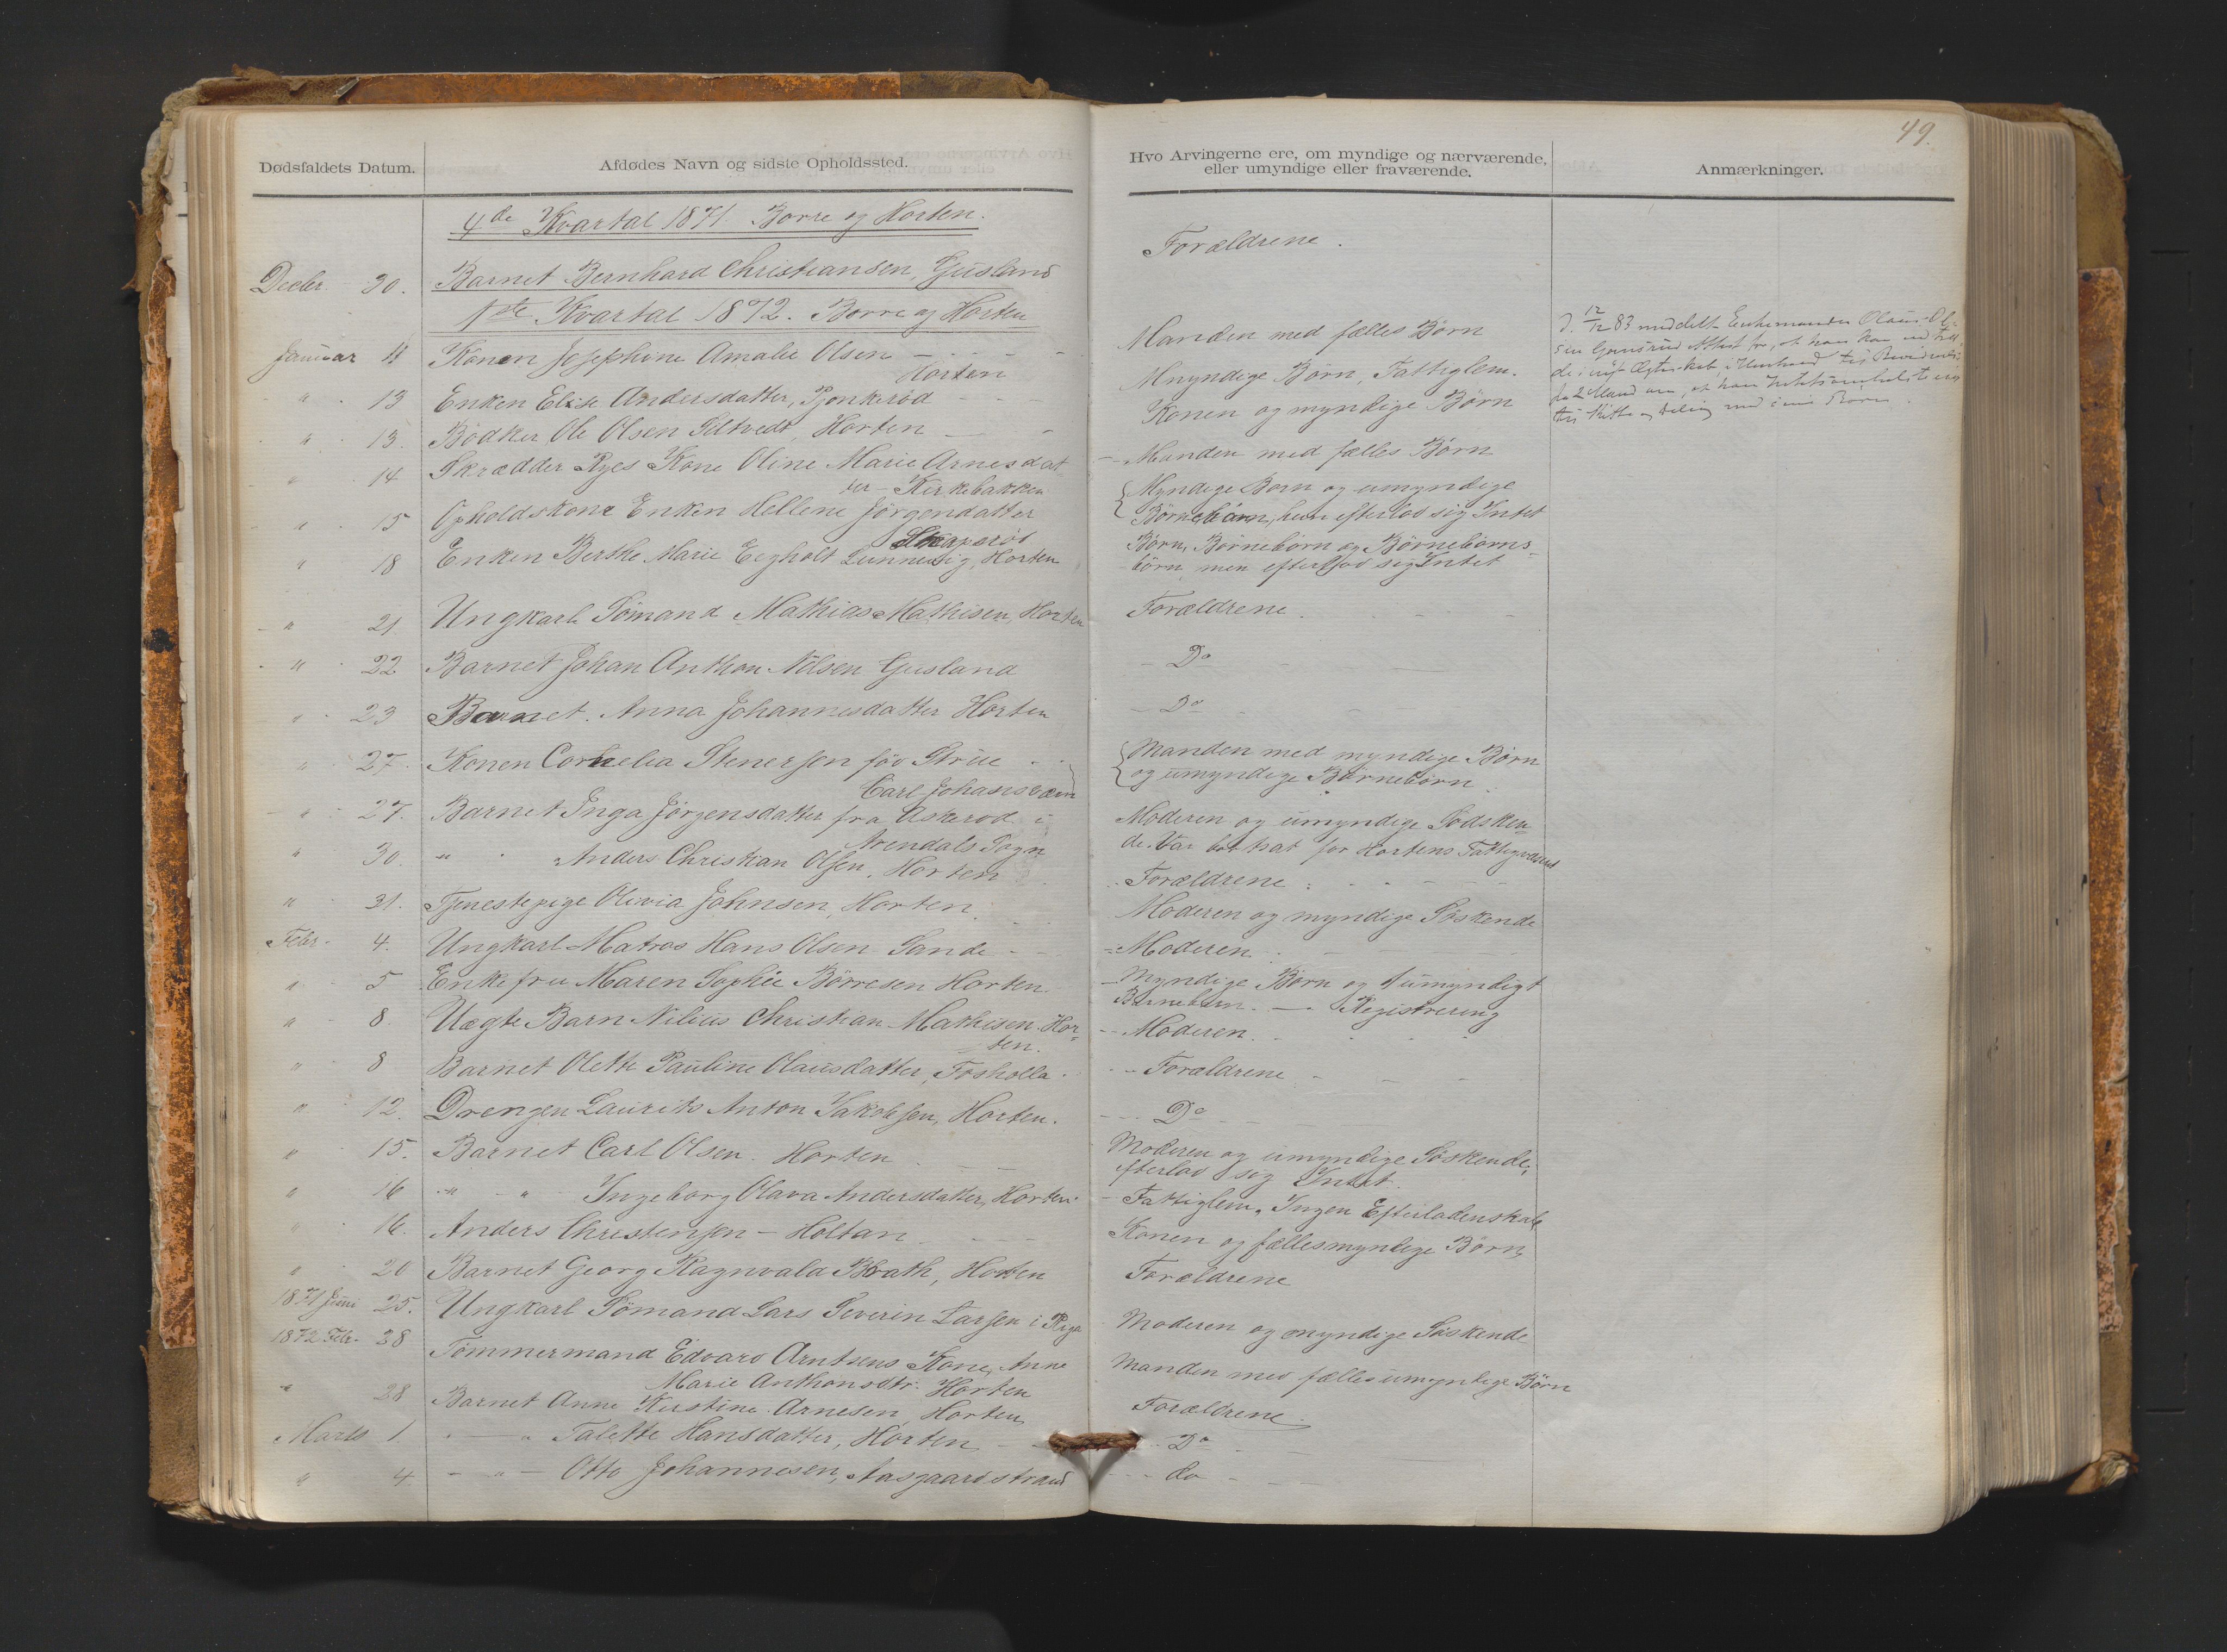 49.
Dødsfaldets Datum.
Afdødes Navn og sidste Opholdssted.
Hvo Arvingerne ere, om myndige og nærværende,
eller umyndige eller fraværende.
Anmærkninger.
4de Kvartal 1871 Borre og Horten.
Decbr. 30. Barnet Bernhard Christiansen, Gusland
Forældrene.
1ste Kvartal 1872. Borre og Horten
Januar 11 Konen Josephine Amalie Olsen
Horten
Manden med fælles Børn
" 13 Enken Elise Andersdatter,
Umyndige Børn, Fattiglem.
" 13. Bødker Ole Olsen Horten
Konen og myndige Børn
" 14 Skrædder Ryes Kone Oline Marie Arnesdat
ter - Kirkebakken
Manden med fælles Børn
" 15 Opholdskone Enken Hellene Jörgendatter
Myndige Børn og umyndige
Börnebörn, hun efterlod sig Intet
" 18 Enken Berthe Marie Eegholt Horten
Børn, Børnebörn og Børnebörns-
börn men efterlod sig Intet
" 21 Ungkarl Sömand Mathias Mathisen, Horten
Forældrene
" 22 Barnet Johan Anthon Nilsen Gusland
Do
" 23 Barnet. Anna Johannesdatter Horten
Do
" 27. Konen Cornelia Stenersen föd Strüe
Carl Johansværn
Manden med myndige Börn
og umyndige Börnebörn.
" 27. Barnet Inga Jörgensdatter fra Askerod i
Arendals Sogn
Moderen og umyndige Södsken
de. Var bortsat for Hortens Fattigvæsen
" 30. " Anders Christian Olsen, Horten
Forældrene
" 31. Tjenestepige Olivia Johnsen, Horten.
Moderen og myndige Söskende
Febr. 4. Ungkarl Matros Hans Olsen Sande
Moderen
" 5 Enkefru Maren Sophie Börresen Horten.
Myndige Børn og 1 umyndigt
Barnebarn. — Registrering
" 8. Uægte Barn Nilius Christian Mathisen. Hor-
ten.
Moderen.
" 8 Barnet Olette Pauline Olausdatter,
Forældrene
" 12. Drengen Laurits Anton Jakobsen, Horten.
Do
" 15. Barnet Carl Olsen. Horten
Moderen og umyndige Söskende,
efterlod sig Intet.
" 16 " " Ingeborg Olava Andersdatter, Horten.
Fattiglem. Ingen Efterladenskab
" 16. Anders Christensen - Holtan
Konen og fælles myndige Børn
" 20 Barnet Georg Ragnvald Horten
Forældrene
1871 Juni 25. Ungkarl Sömand Lars Severin Larsen i Riga
Moderen og myndige Söskende
1872 Febr. 28 Tommermand Edvard Arntsens Kone, Anne
Marie Anthonsdtr. Horten
Manden med fælles umyndige Børn
" 28 Barnet Anne Kirstine Arnesen, Horten
Forældrene.
Marts 1 " Talette Hansdatter, Horten
Do
" 4. " Otto Johannesen, Aasgaardstrand
do